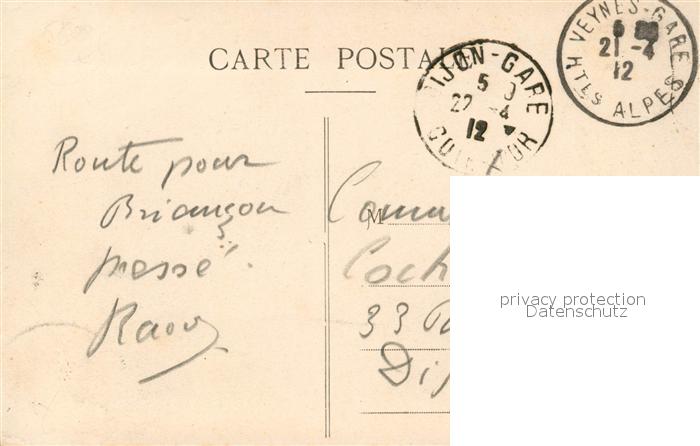 CARTE POSTALE
VEYNES-GARE
21 -4
12
HTES ALPES
DIJON-GARE
5
22 -4
12
COTE D'OR
Route pour
Briançon
pressé.
Raoul
M
Coch
33
Dij
privacy protection
Datenschutz